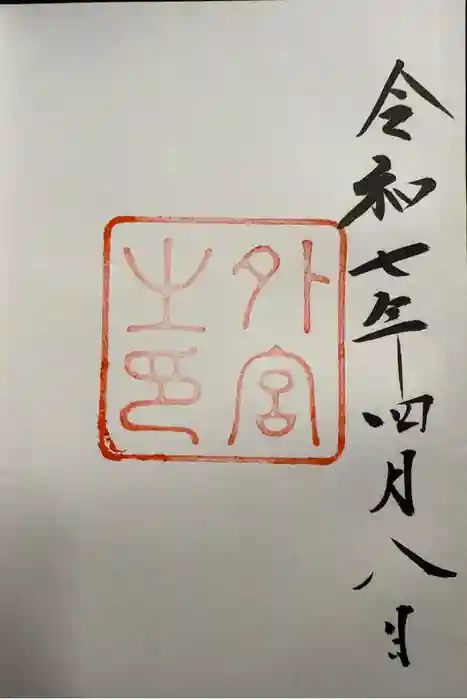 令和七年四月八日
外宮
之印